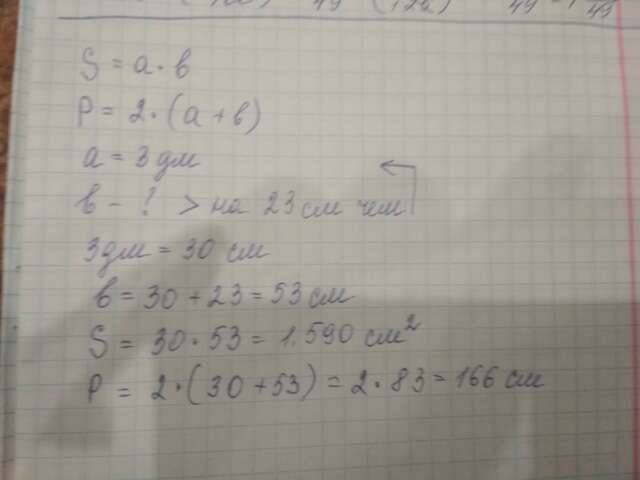 S = а · в
P = 2 · (а + в)
а = 3 дм
в - ? > на 23 см чем
3 дм = 30 см
в = 30 + 23 = 53 см
S = 30 · 53 = 1.590 см²
P = 2 · (30 + 53) = 2 · 83 = 166 см